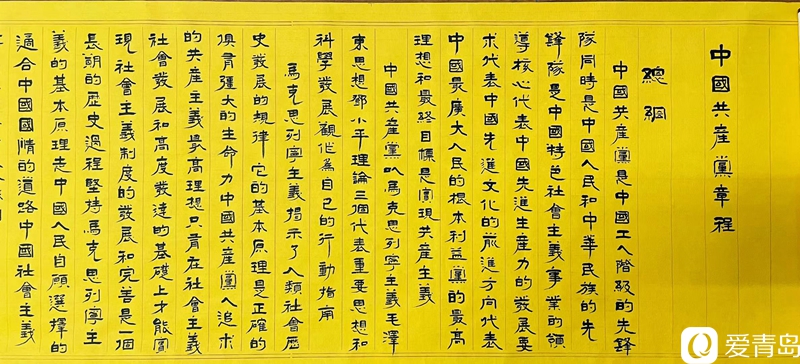 中國共産黨章程
總綱
中國共産黨是中國工人階級的先鋒
隊同時是中國人民和中華民族的先
鋒隊是中國特色社會主義事業的領
導核心代表中國先進生産力的發展要
求代表中國先進文化的前進方向代表
中國最廣大人民的根本利益黨的最高
理想和最終目標是實現共産主義
中國共産黨以馬克思列寧主義毛澤
東思想鄧小平理論三個代表重要思想和
科學發展觀作爲自己的行動指南
馬克思列寧主義揭示了人類社會歷
史發展的規律它的基本原理是正確的
具有強大的生命力中國共産黨人追求
的共産主義最高理想只有在社會主義
社會發展和高度發達的基礎上才能實
現社會主義制度的發展和完善是一個
長期的歷史過程堅持馬克思列寧主
義的基本原理走中國人民自願選擇的
適合中國國情的道路中國社會主義
爱青岛